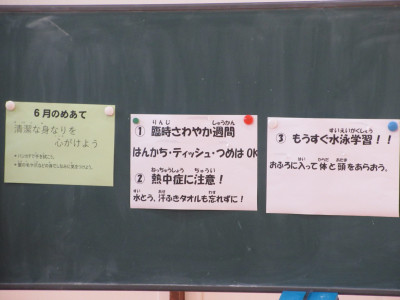 6月のめあて
清潔な身なりを
心がけよう
① 臨時さわやか週間
りんじ しゅうかん
はんかち・ティッシュ・つめは OK
② 熱中症に注意!
ねっちゅうしょう ちゅうい
水とう、汗ふきタオルも忘れずに!
すい あせ わす
③ もうすぐ水泳学習!!
すいえいがくしゅう
おふろに入って体と頭をあらおう。
はい からだ あたま